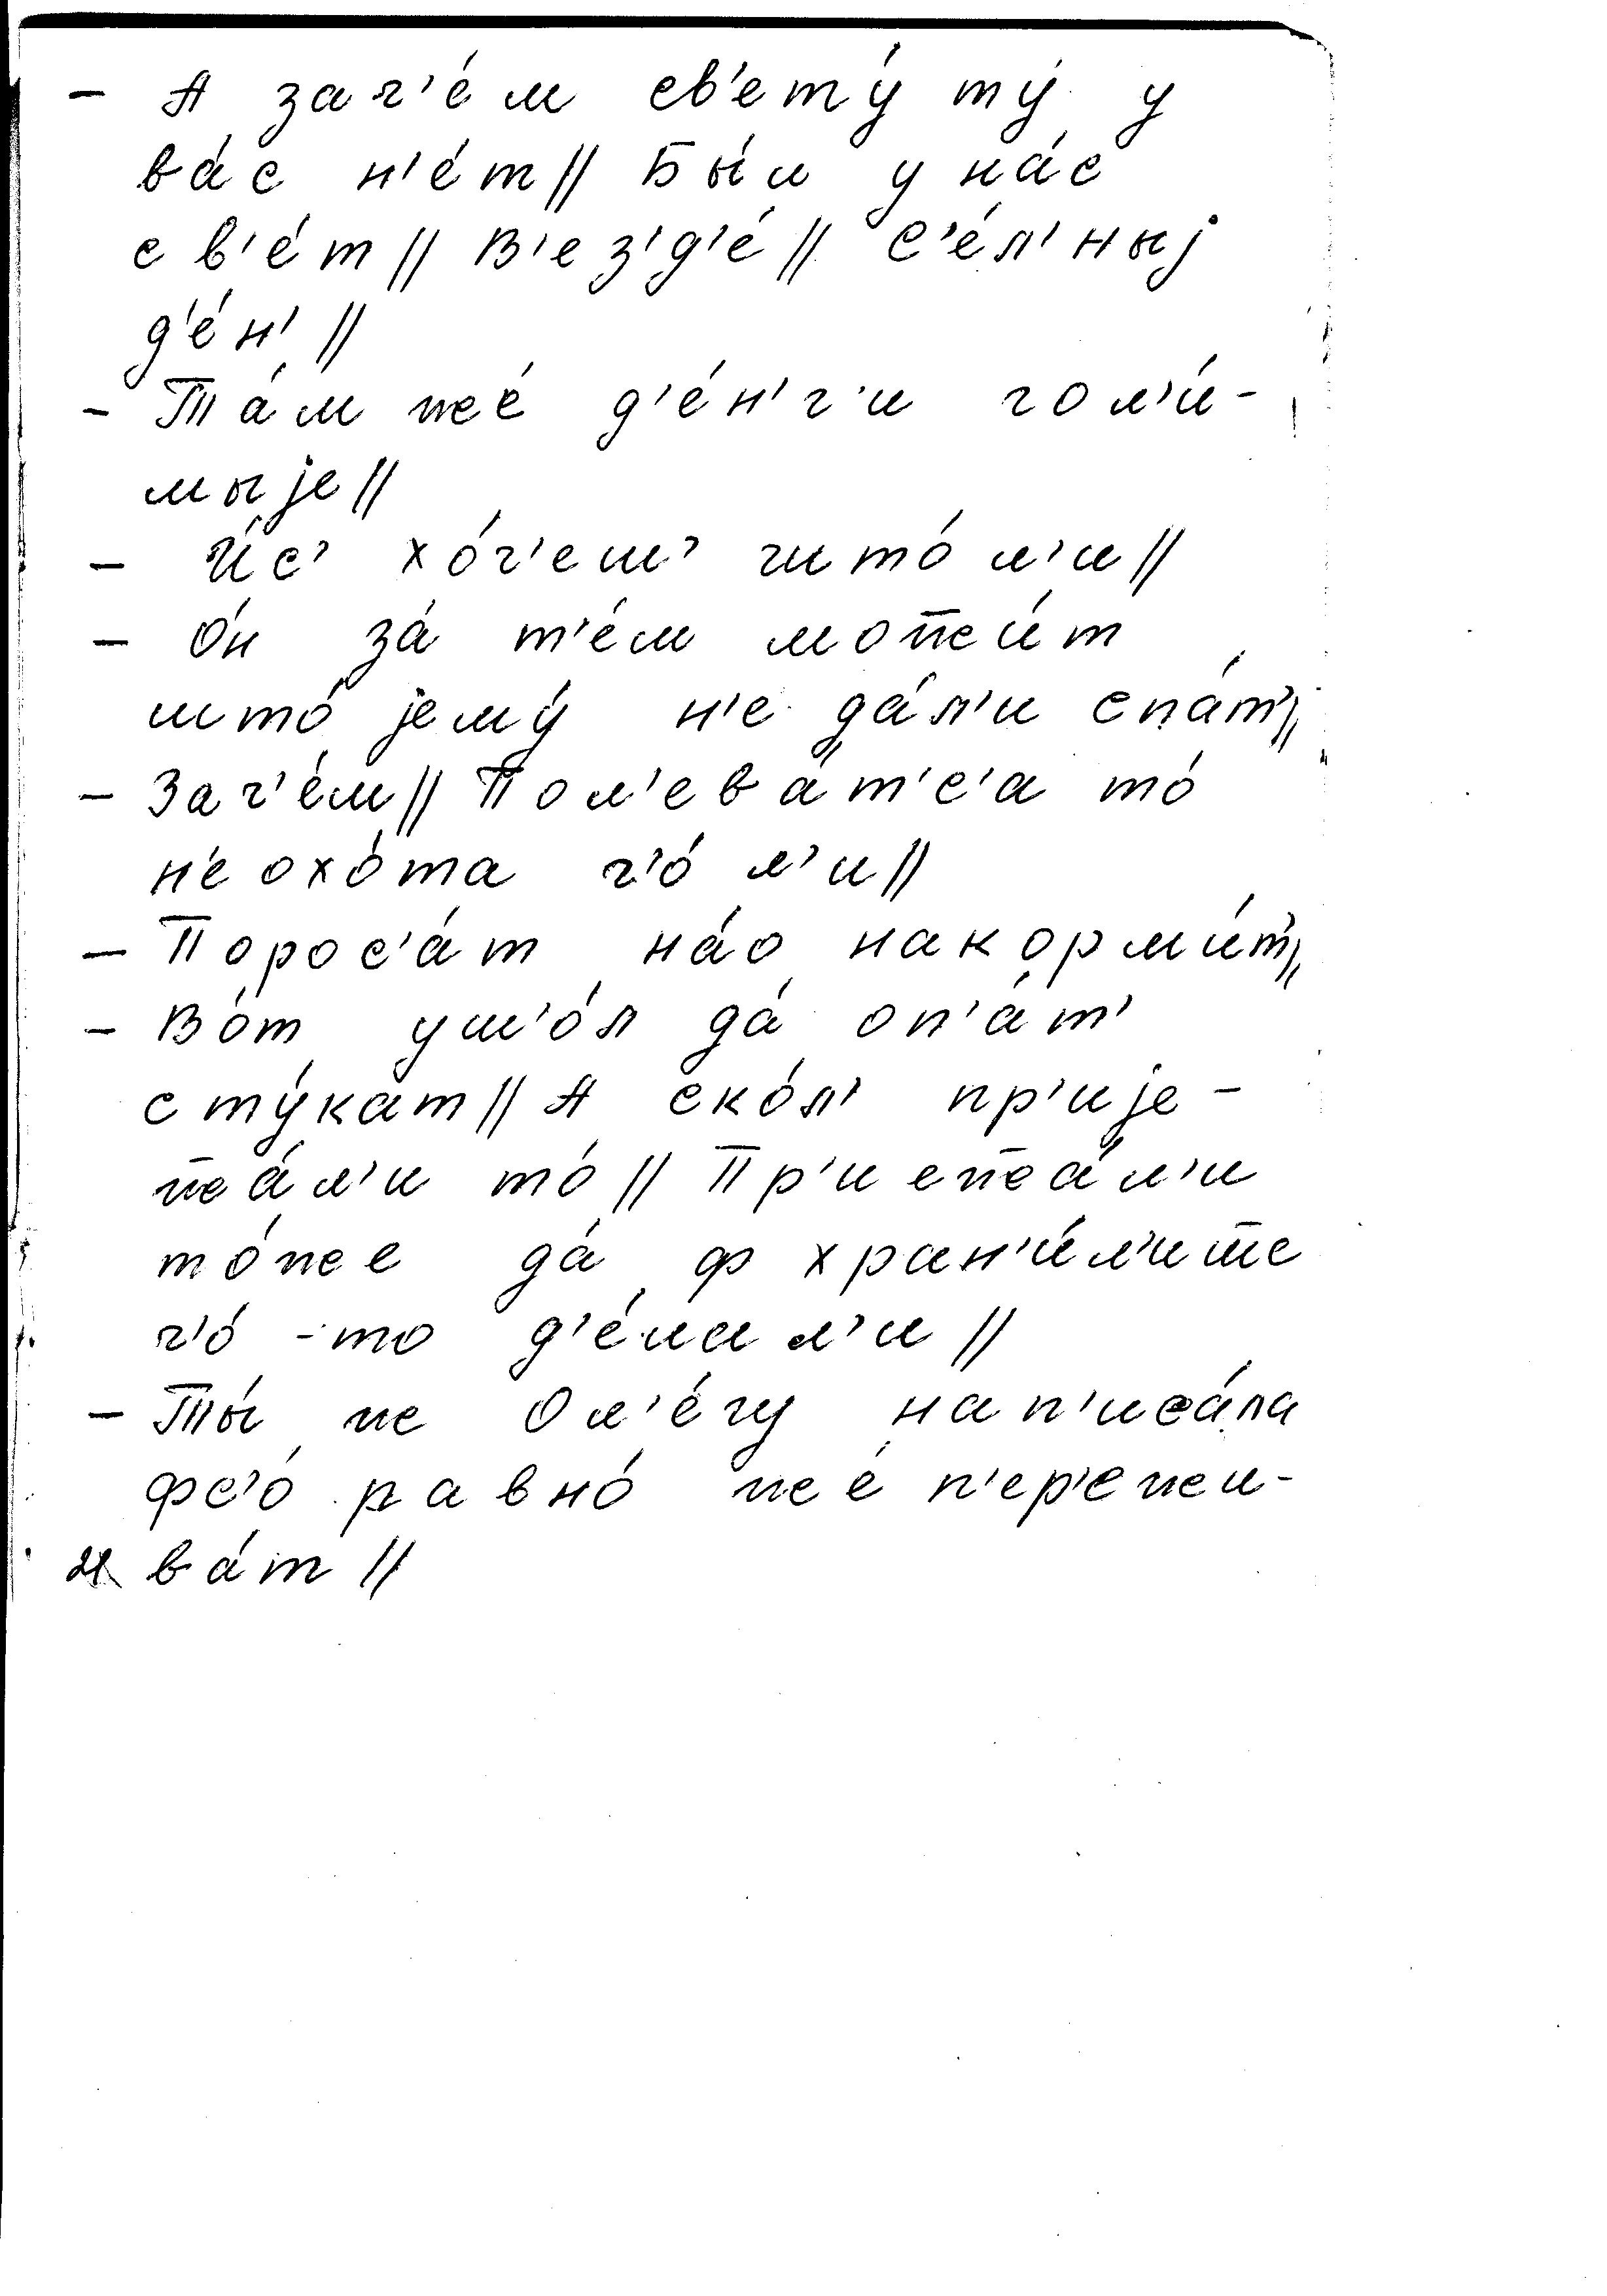 – А зач'е́м св'ету́ ту́ у
ва́с н'е́т || Бы́л у на́с
св'е́т || В'ез'д'е́ || С'е́л'ныј
д'е́н' ||
– Та́м же́ д'е́н'г'и гол'и́-
мыје ||
– И́с' хо́ч'еш' што́ л'и ||
– О́н за́ т'е́м можи́т
што́ јему́ н'е да́л'и спа́т' ||
– Зач'е́м || Пол'ева́т'с'а то́
н'е охо́та ч'о́ л'и ||
– Порос'а́т на́о накорми́т' ||
– Во́т уш'о́л да́ оп'а́т'
сту́кат || А ско́л' пр'иje-
жа́л'и то́ || Пр'иежа́л'и
то́же да́ ф хран'и́л'ишше
ч'о́ -то д'е́лал'и ||
– Ты́ же Ол'е́гу нап'иса́ла
фс'о́ равно́ же́ п'ер'ежи-
ва́т ||